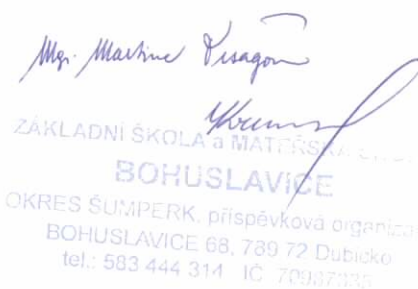 Mgr. Martina
ZÁKLADNÍ ŠKOLA a MATEŘSKÁ
BOHUSLAVICE
OKRES ŠUMPERK, příspěvková organizac
BOHUSLAVICE 68, 789 72 Dubicko
tel.: 583 444 314 IČ